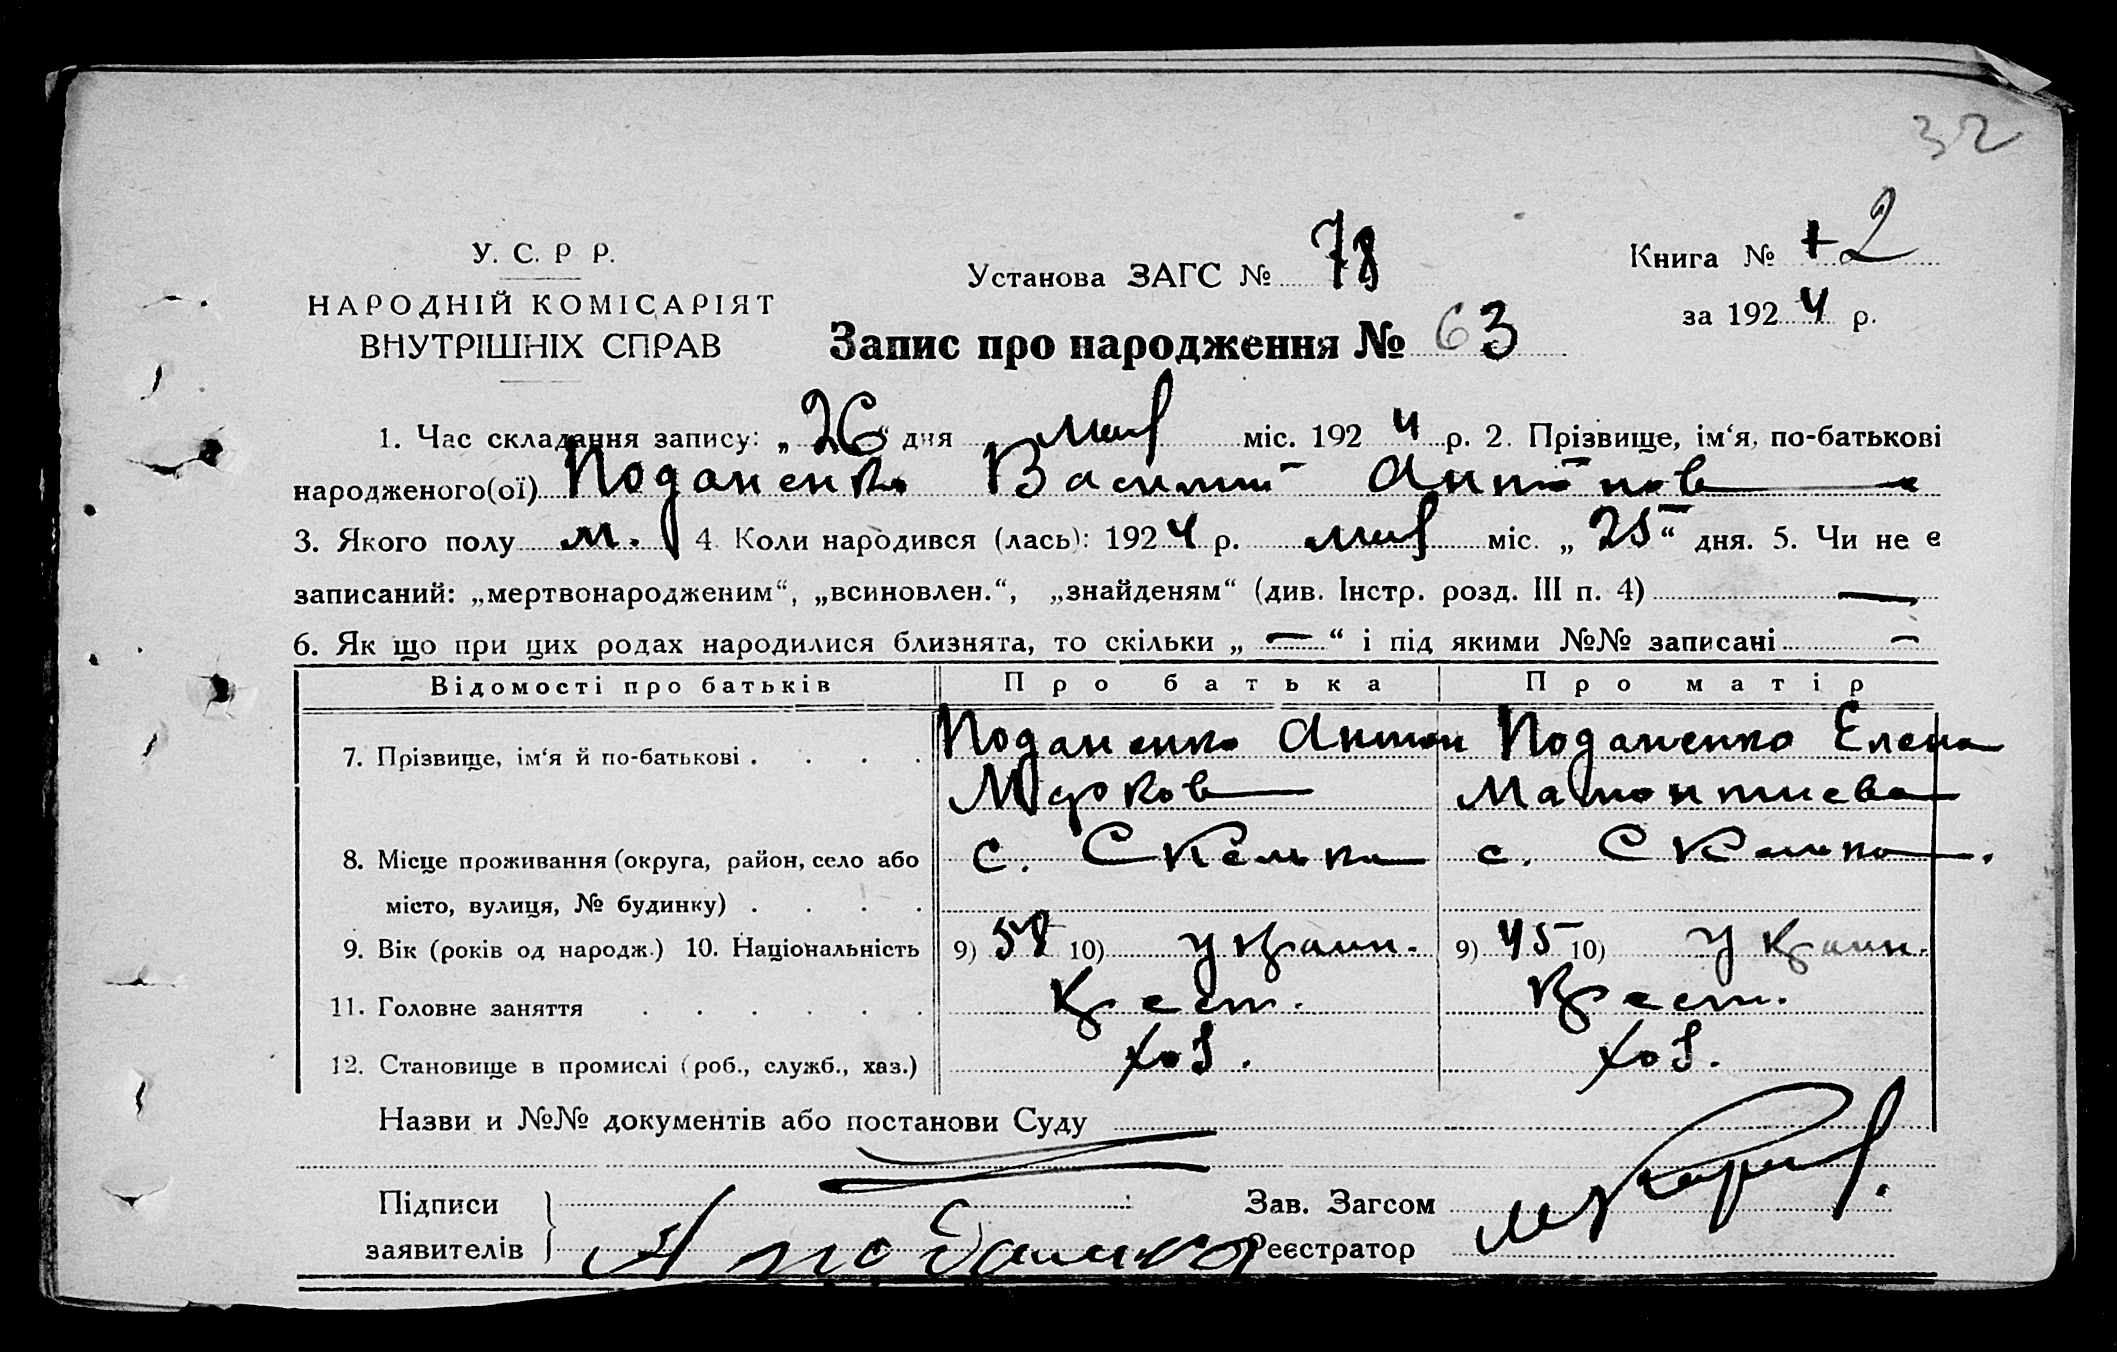 32
У. С. Р Р.
НАРОДНІЙ КОМІСАРІЯТ
ВНУТРІШНІХ СПРАВ
Установа ЗАГС № 78
Книга № 2
за 1924 р.
Запис про народження № 63
1. Час складання запису: „26“ дня мая міс. 1924 р. 2. Прізвище, ім‘я, по-батькові
народженого(ої) Поданенко Василий Антонов
3. Якого полу м. 4. Коли народився (лась): 1924 р. мая міс. „25“ дня. 5. Чи не є
записаний: „мертвонародженим“, „всиновлен.“, „знайденям“ (див. Інстр. розд. III п. 4) —
6. Як що при цих родах народилися близнята, то скільки „—“ і під якими №№ записані —
Відомості про батьків Про батька Про матір
7. Прізвище, ім‘я й по-батькові . . . . Поданенко Антон Поданенко Елена
Марков Мамонтиева
8. Місце проживання (округа, район, село або с. Скелька с. Скелька.
місто, вулиця, № будинку) . . . .
9. Вік (років од народж.) 10. Національність 9) 58 10) Украин. 9) 45 10) Украин.
11. Головне заняття . . . . . . Крест. Крест.
12. Становище в промислі (роб., служб., хаз.) хоз. хоз.
Назви и №№ документів або постанови Суду
Підписи
заявителів
А Поданенко
Зав. Загсом
Реєстратор